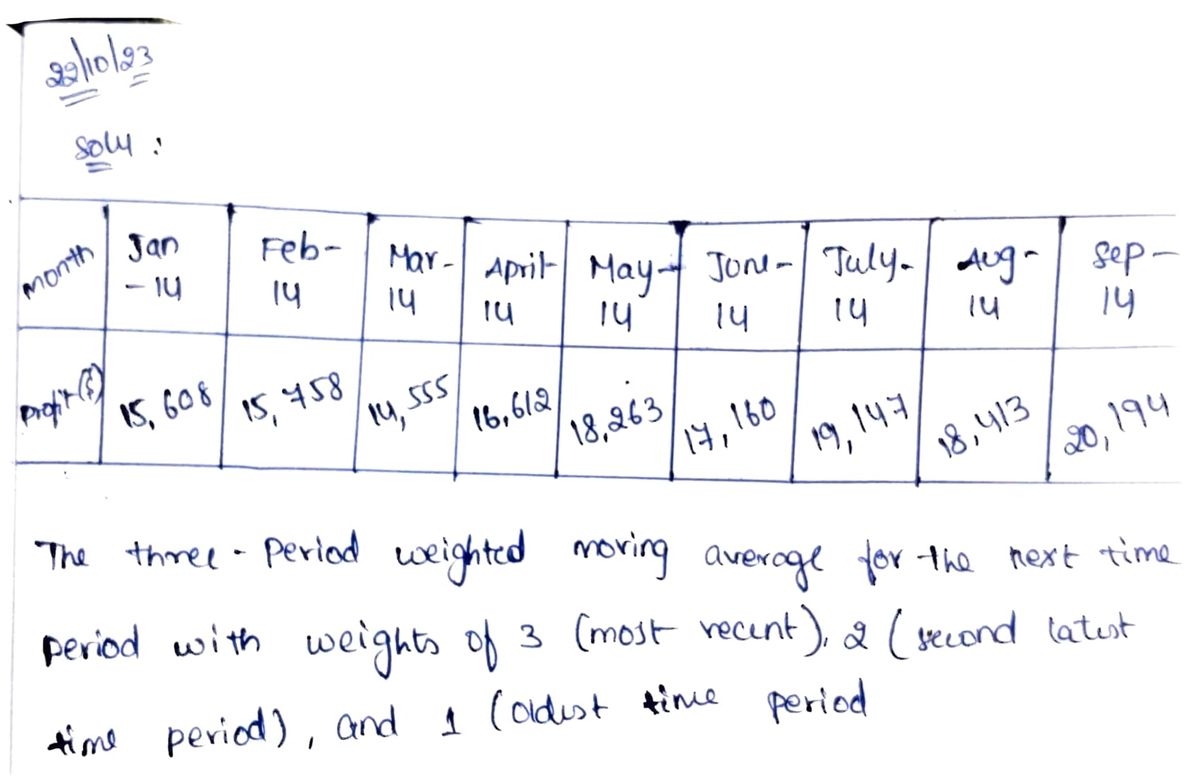 22/10/23
Soly :
month Jan - 14 Feb- 14 Mar- 14 April- 14 May- 14 June- 14 July- 14 Aug- 14 Sep- 14
Profit($) 15,608 15,758 14,555 16,612 18,263 17,160 19,147 18,413 20,194
The three - Period weighted moving average for the next time
period with weights of 3 (most recent), 2 (second latest
time period), and 1 (oldest time period